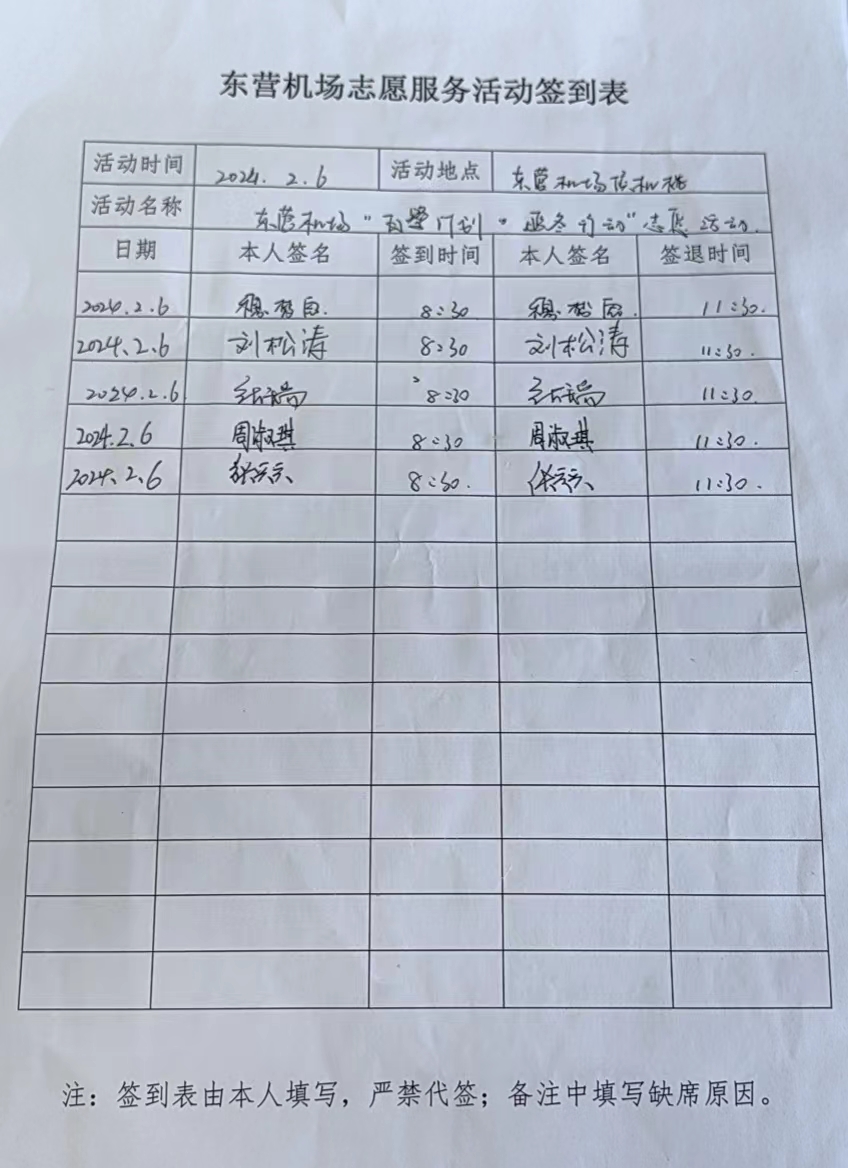 东营机场志愿服务活动签到表
活动时间 2024.2.6 活动地点 东营机场候机楼
活动名称 东营机场“ 暖冬行动”志愿活动.
日期 本人签名 签到时间 本人签名 签退时间
2024.2.6 8:30 11:30.
2024.2.6 刘松涛 8:30 刘松涛 11:30.
2024.2.6 8:30 11:30.
2024.2.6 周淑琪 8:30 周淑琪 11:30.
2024.2.6 8:30. 11:30.
注：签到表由本人填写，严禁代签；备注中填写缺席原因。